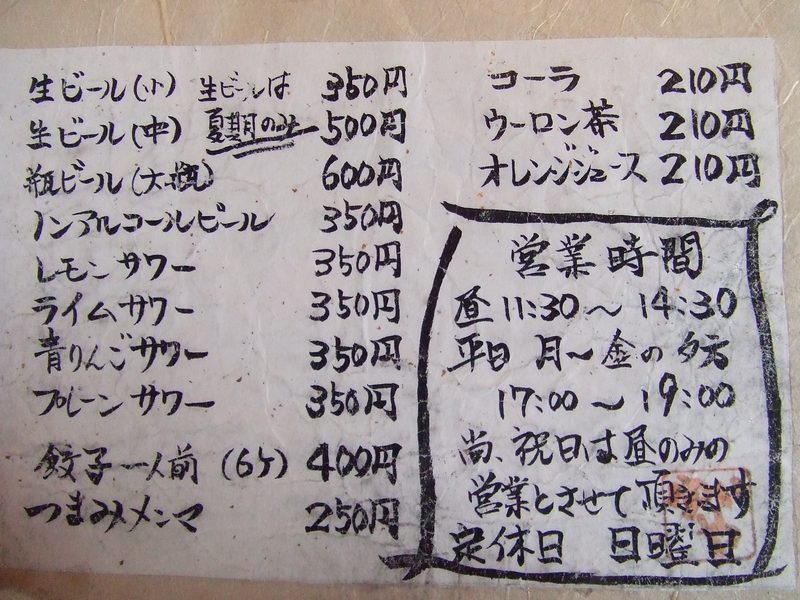 生ビール(小) 生ビールは 350円
生ビール(中) 夏期のみ 500円
瓶ビール(大瓶) 600円
ノンアルコールビール 350円
レモンサワー 350円
ライムサワー 350円
青りんごサワー 350円
プレーンサワー 350円
餃子一人前(6ケ) 400円
つまみメンマ 250円
コーラ 210円
ウーロン茶 210円
オレンジジュース 210円
営業時間
昼11:30〜14:30
平日 月〜金の夕方
17:00〜19:00
尚、祝日は昼のみの
営業とさせて頂きます
定休日 日曜日